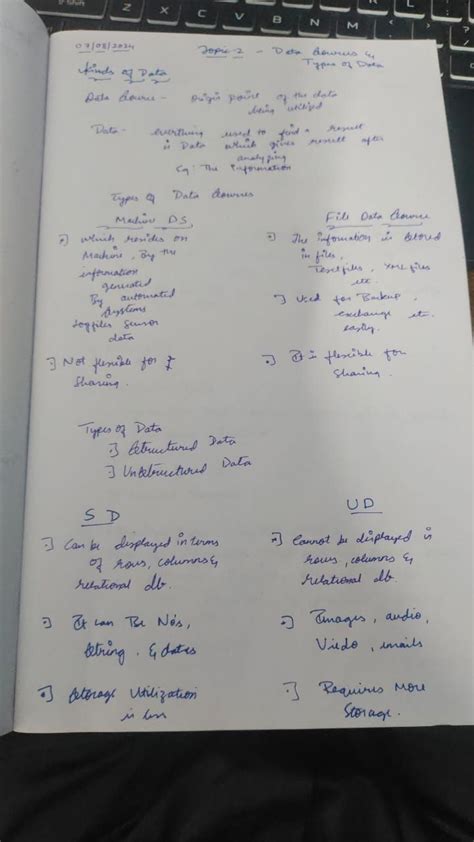 07/08/2024
Topic-2 - Data Sources &
Types of Data
Kinds of Data
Data Source - Origin point of the data
being utilized
Data - everything used to find a result
is Data which gives result after
analyzing
Eg: The information
Types of Data Sources
Machine DS
•] which resides on
Machine, By the
information
generated
By automated
Systems
Logfiles Sensor
data
•] Not flexible for
Sharing.
File Data Source
•] The information is stored
in files,
Textfiles, XML files
etc.
•] Used for Backup,
exchange etc.
easily.
•] It is flexible for
Sharing.
Types of Data
•] Structured Data
•] UnStructured Data
SD
•] Can be displayed in terms
of rows, columns &
relational db.
•] It can Be No's,
String. & dates
•] Storage Utilization
is less
UD
•] Cannot be displayed in
rows, columns &
relational db.
•] Images, audio,
Viedo, emails
•] Requires More
Storage.